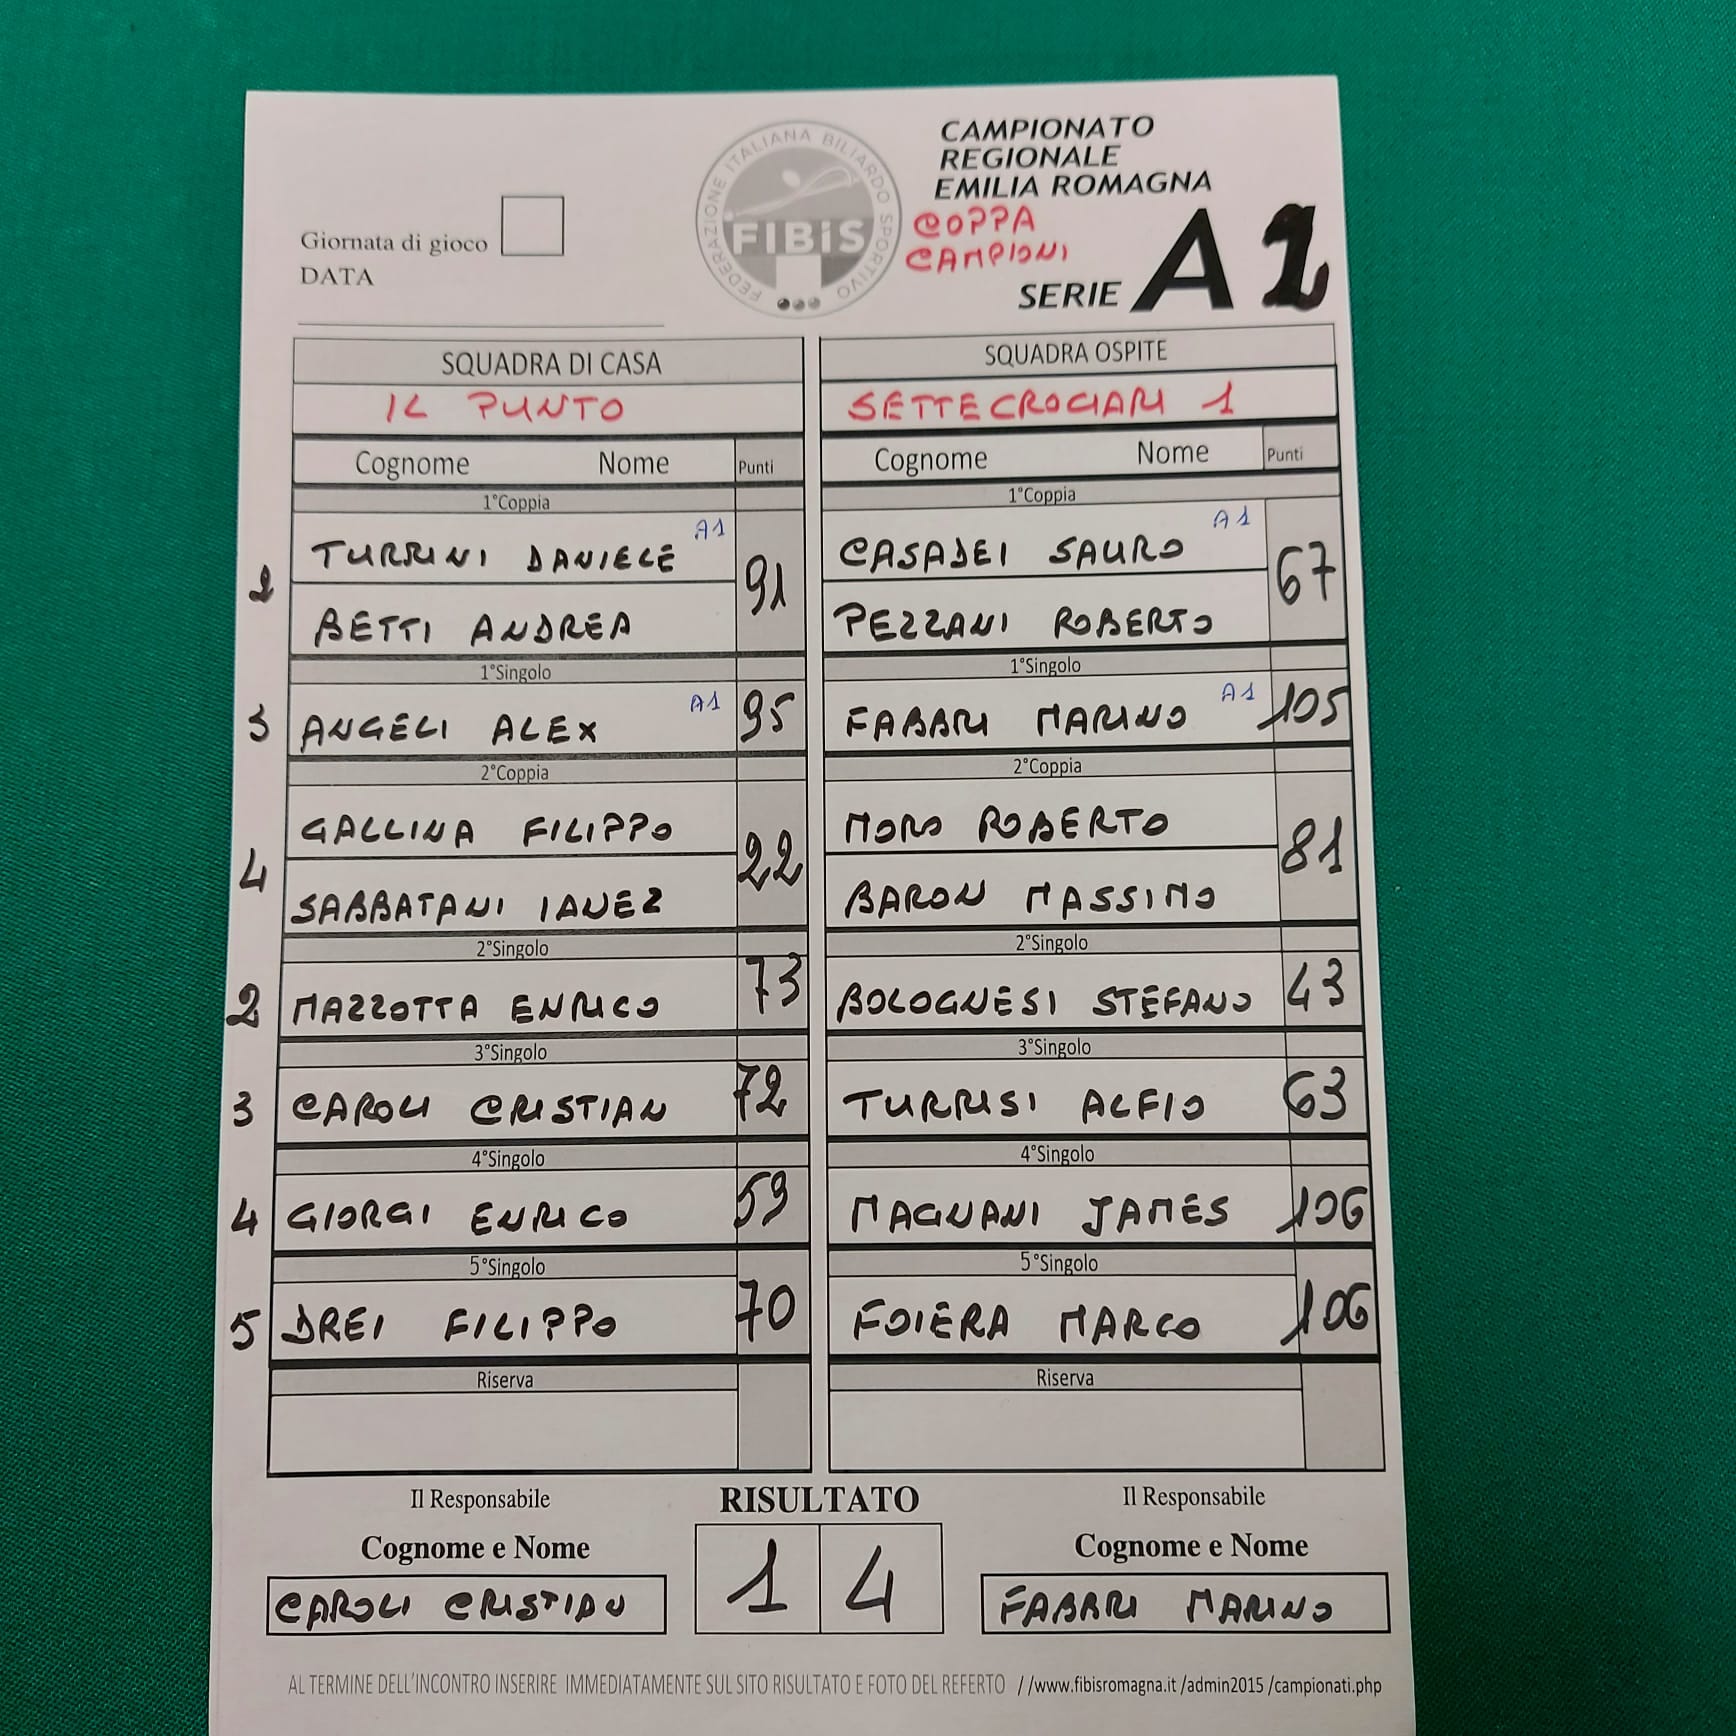 CAMPIONATO
REGIONALE
EMILIA ROMAGNA
COPPA
CAMPIONI
SERIE A 2
FEDERAZIONE ITALIANA BILIARDO SPORTIVO
FIBiS
Giornata di gioco
DATA
SQUADRA DI CASA SQUADRA OSPITE
IL PUNTO SETTECROCIARI 1
Cognome Nome Punti Cognome Nome Punti
1°Coppia 1°Coppia
TURRINI DANIELE A1 CASADEI SAURO A1
2 91 67
BETTI ANDREA PEZZANI ROBERTO
1°Singolo 1°Singolo
3 ANGELI ALEX A1 95 FABBRI MARINO A1 105
2°Coppia 2°Coppia
GALLINA FILIPPO MORO ROBERTO
4 22 81
SABBATANI IANEZ BARON MASSIMO
2°Singolo 2°Singolo
2 MAZZOTTA ENRICO 73 BOLOGNESI STEFANO 43
3°Singolo 3°Singolo
3 CAROLI CRISTIAN 72 TURRISI ALFIO 63
4°Singolo 4°Singolo
4 GIORGI ENRICO 59 MAGNANI JAMES 106
5°Singolo 5°Singolo
5 DREI FILIPPO 70 FOIERA MARCO 106
Riserva Riserva
Il Responsabile RISULTATO Il Responsabile
Cognome e Nome 1 4 Cognome e Nome
CAROLI CRISTIAN FABBRI MARINO
AL TERMINE DELL'INCONTRO INSERIRE IMMEDIATAMENTE SUL SITO RISULTATO E FOTO DEL REFERTO //www.fibisromagna.it /admin2015 /campionati.php